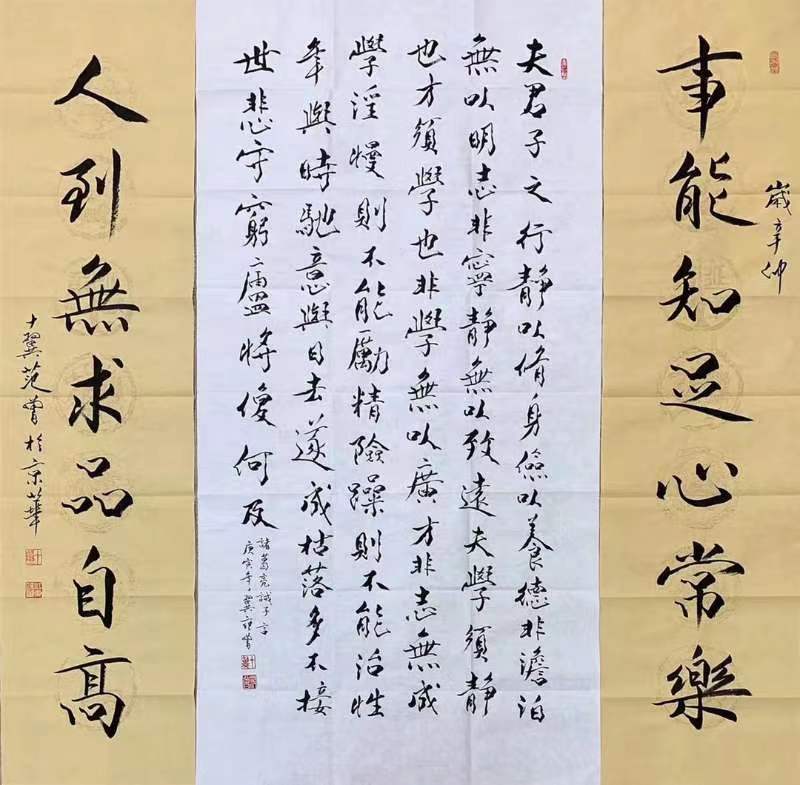 歲辛卯
事能知足心常樂
夫君子之行靜以脩身儉以養德非澹泊
無以明志非寧靜無以致遠夫學須靜
也才須學也非學無以廣才非志無成
學淫慢則不能勵精險躁則不能治性
年與時馳意與日去遂成枯落多不接
世悲守窮廬將復何及
諸葛亮誡子
庚寅年十翼范曾
人到無求品自高
十翼范曾於京華